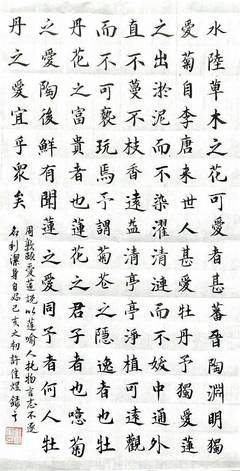 水陸草木之花可愛者甚蕃晉陶淵明獨
愛菊自李唐來世人甚愛牡丹予獨愛蓮
之出淤泥而不染濯清漣而不妖中通外
直不蔓不枝香遠益清亭亭淨植可遠觀
而不可褻玩焉予謂菊花之隱逸者也牡
丹花之富貴者也蓮花之君子者也噫菊
之愛陶後鮮有聞蓮之愛同予者何人牡
丹之愛宜乎眾矣
周敦頤愛蓮說以蓮喻人托物言志不逐
名利潔身自好己亥之初許佳